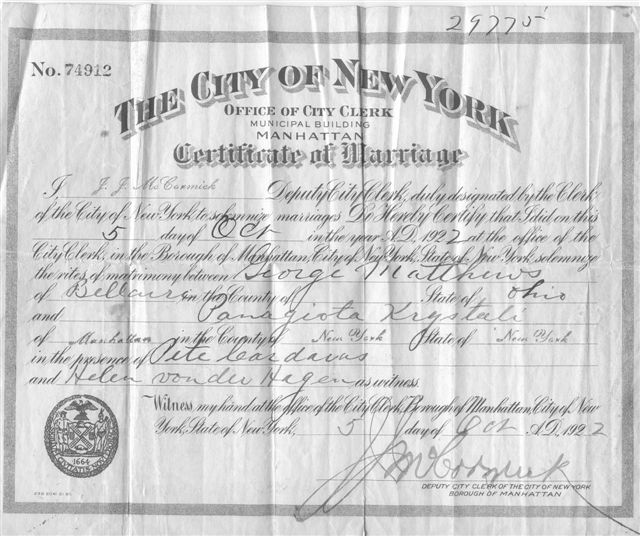 29775
No. 74912
THE CITY OF NEW YORK
OFFICE OF CITY CLERK
MUNICIPAL BUILDING
MANHATTAN
Certificate of Marriage
I J. J. McCormick Deputy City Clerk, duly designated by the Clerk
of the City of New York to solemnize marriages Do Hereby Certify that I did on this
5 day of Oct in the year A.D. 1922 at the office of the
City Clerk, in the Borough of Manhattan, City of New York, State of New York solemnize
the rites of matrimony between George Matthews
of Bellaire in the County of State of Ohio
and Panagiota Krystali
of Manhattan in the County of New York State of New York
in the presence of Pete Cardavas
and Helen von der Hagen as witness.
Witness, my hand at the office of the City Clerk, Borough of Manhattan, City of New
York, State of New York, 5 day of Oct A.D. 1922
J. J. McCormick
DEPUTY CITY CLERK OF THE CITY OF NEW YORK
BOROUGH OF MANHATTAN
1664